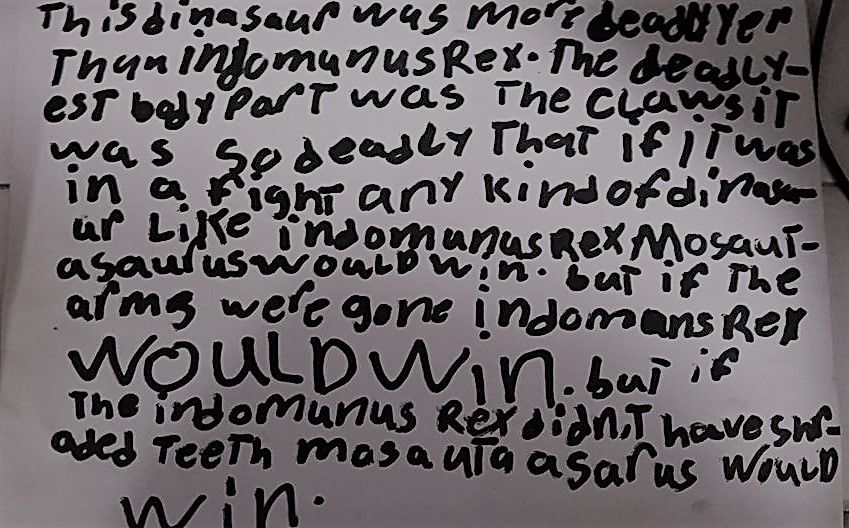 This dinasaur was more deadlyyer
Than indomunus Rex. The deadly-
est body part was The claws iT
was so deadly That if iT was
in a fight any kind of dinasa-
ur Like indomunus Rex Mosaut-
asaurus would win. but if The
arms were gone indomans Rex
WOULD Win. but if
The indomunus Rex didn,t have shr-
aded Teeth masauta asarus would
win.